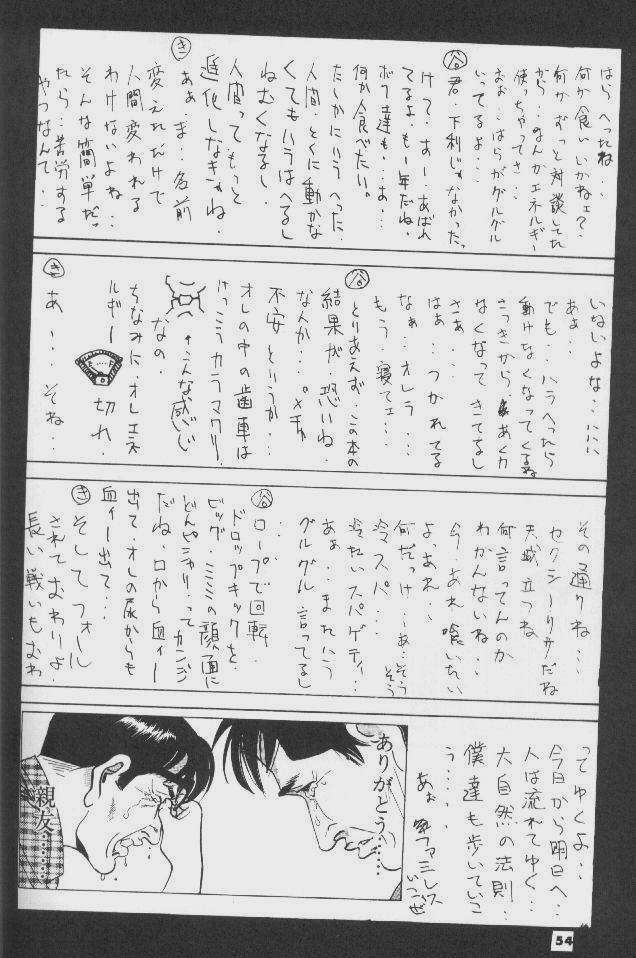 はらへったね・・
何か食いいかねェ?・
何かずっと対談してた
から・・なんかエネルギー
使っちゃってさ・・
おお・・はらがグルグル
いってるよ・・・
谷 君・下利じゃなかった。
けて・・すー・・あばれ
てるよ・も一年だね・
ボク達も・・・お・・・
何か食べたい。
たしかにハラへった・
人間・とくに動かな
くてもハラはへるし
ねむくなるし・
人間って・もっと
進化しなきゃね・
き ああ・ま・名前
変えただけで
人間変われる
わけないよね・・
そんな簡単だ。
たら・・苦労する
やつなんて・・
いないよな・・・
ああ・・
でも・・ハラへったら
動けなくなってくるね
さっきから あく力
なくなってきてるし
さあ・・・・
はぁ・・つかれてる
なぁ・・オレラ・・・
もう・寝てェ・・・
谷 とりあえず・この本の
結果が・恐いね・
なんか・・・メチャ
不安というか・・
オレの中の歯車は
けっこうカラマワリ・
↑こんな感じ
なの・
ちなみに・オレエネ
ルギー 切れ・
き あ・・・・そね・・
その通りね・・・
セクシーリサだね
天城立つね
何言ってんのか
わかんないね・・・
今・あれ喰いたい
よ・あれ・・
何だっけ・・あ・そうそう
冷スパ・・・
冷たいスパゲティ・・・
あぁ・・またハラ
グルグル言ってるし
・・
谷 ロープで回転・
ドロップキックを・
ビッグ・ミミミの顔面に
どんピシャリ・ってカンジ
だね・口から血ィー
出て・オレの尿からも
血ィー出て・・・
き そしてフォール
されておわりよ・
長い戦いもおわ
ってゆくよ・・・
今日から明日へ・・
人は流れてゆく・・
大自然の法則・・
僕達も歩いていこ
う・・・・っ
あぁ ファミレス
いこーぜ
ありがとう・・・・
親友・・・・・・・
54